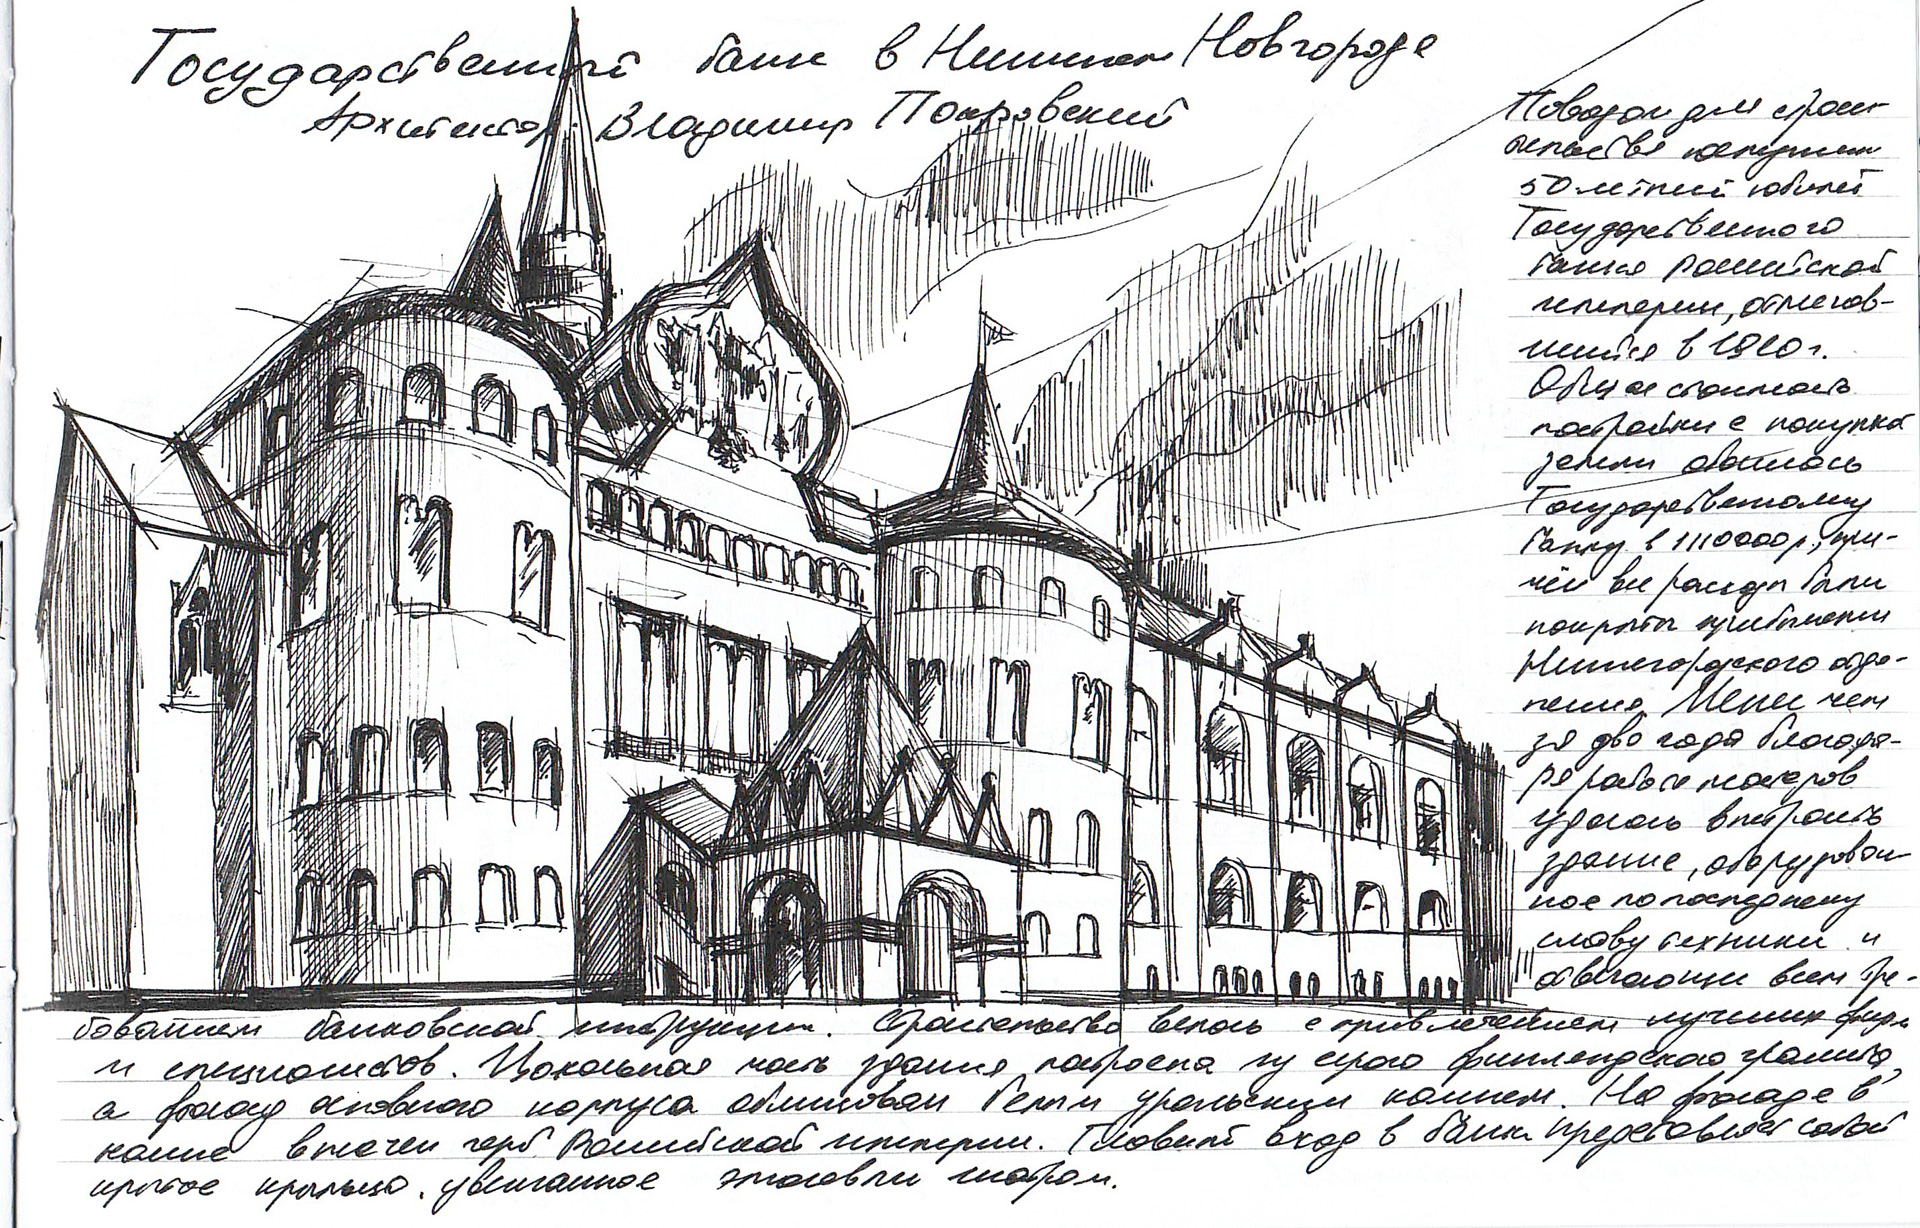 Государственный банк в Нижнем Новгороде
Архитектор Владимир Покровский
Поводом для строи-
тельства послужил
50 летний юбилей
Государственного
банка Российской
империи, отмечав-
шийся в 1910 г.
Общая стоимость
постройки с покупкой
земли обошлась
Государственному
банку в 1110000 р, при-
чём все расходы были
покрыты прибылями
Нижегородского отде-
ления. Менее чем
за два года благода-
ря работе мастеров
удалось выстроить
здание, оборудован-
ное по последнему
слову техники и
отвечающи всем тре-
бованием банковской инструкции. Строительство велось с привлечением лучших фирм
и специалистов. Цокольная часть здания построена из серого финляндского гранита,
а фасад основного корпуса облицован белым уральским камнем. На фасаде в
камне высечен герб Российской империи. Главный вход в банк представляет собой
крытое крыльцо, увенчанное шатром.